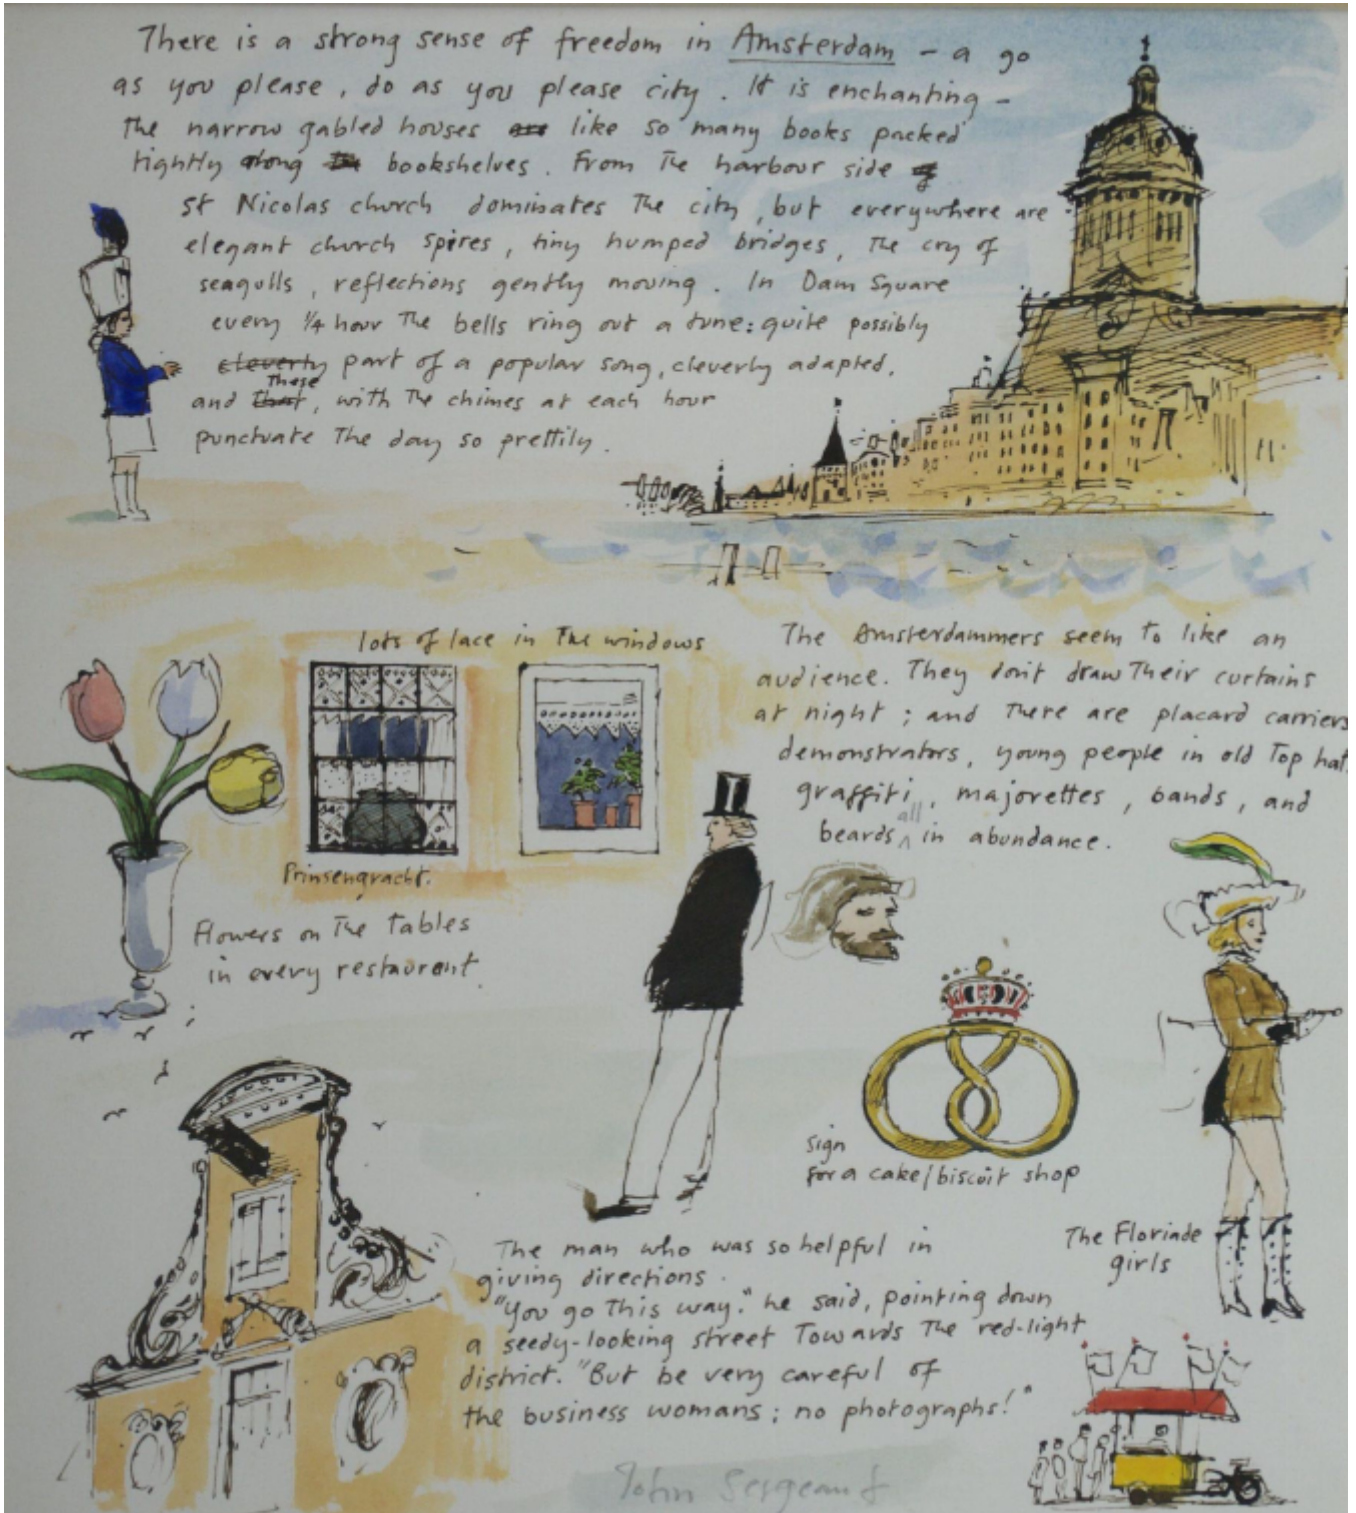 There is a strong sense of freedom in Amsterdam - a go
as you please, do as you please city. It is enchanting -
The narrow gabled houses are like so many books packed
tightly along the bookshelves. From The harbour side of
St Nicolas church dominates The city, but everywhere are
elegant church spires, tiny humped bridges, The cry of
seagulls, reflections gently moving. In Dam Square
every 1/4 hour The bells ring out a tune: quite possibly
cleverly part of a popular song, cleverly adapted,
These
and that, with The chimes at each hour
punctuate The day so prettily.
lots of lace in The windows
Prinsengracht.
Flowers on The Tables
in every restaurent.
The Amsterdammers seem To like an
audience. They don't draw Their curtains
at night; and There are placard carriers
demonstrators, young people in old Top hat
graffiti, majorettes, bands, and
all
beards ^ in abundance.
sign
for a cake/biscuit shop
The Floriade
girls
The man who was so helpful in
giving directions.
"You go This way." he said, pointing down
a seedy-looking street Towards The red-light
district. "But be very careful of
the business womans; no photographs!"
John Sergeant